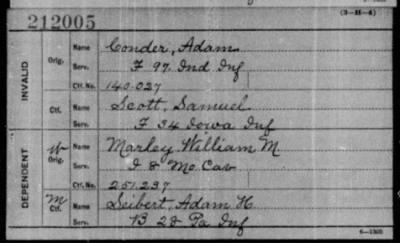 (3-H-4)
212005
INVALID
Orig. Name Conder, Adam
Serv. F 97 Ind Inf
Ctf. No. 140.027
Ctf. Name Scott, Samuel
Serv. F 34 Iowa Inf
DEPENDENT
W Orig. Name Marley William M
Serv. I 8 Mo Cav
Ctf. No. 251.237
M Ctf. Name Seibert, Adam H
Serv. B 28 Pa Inf